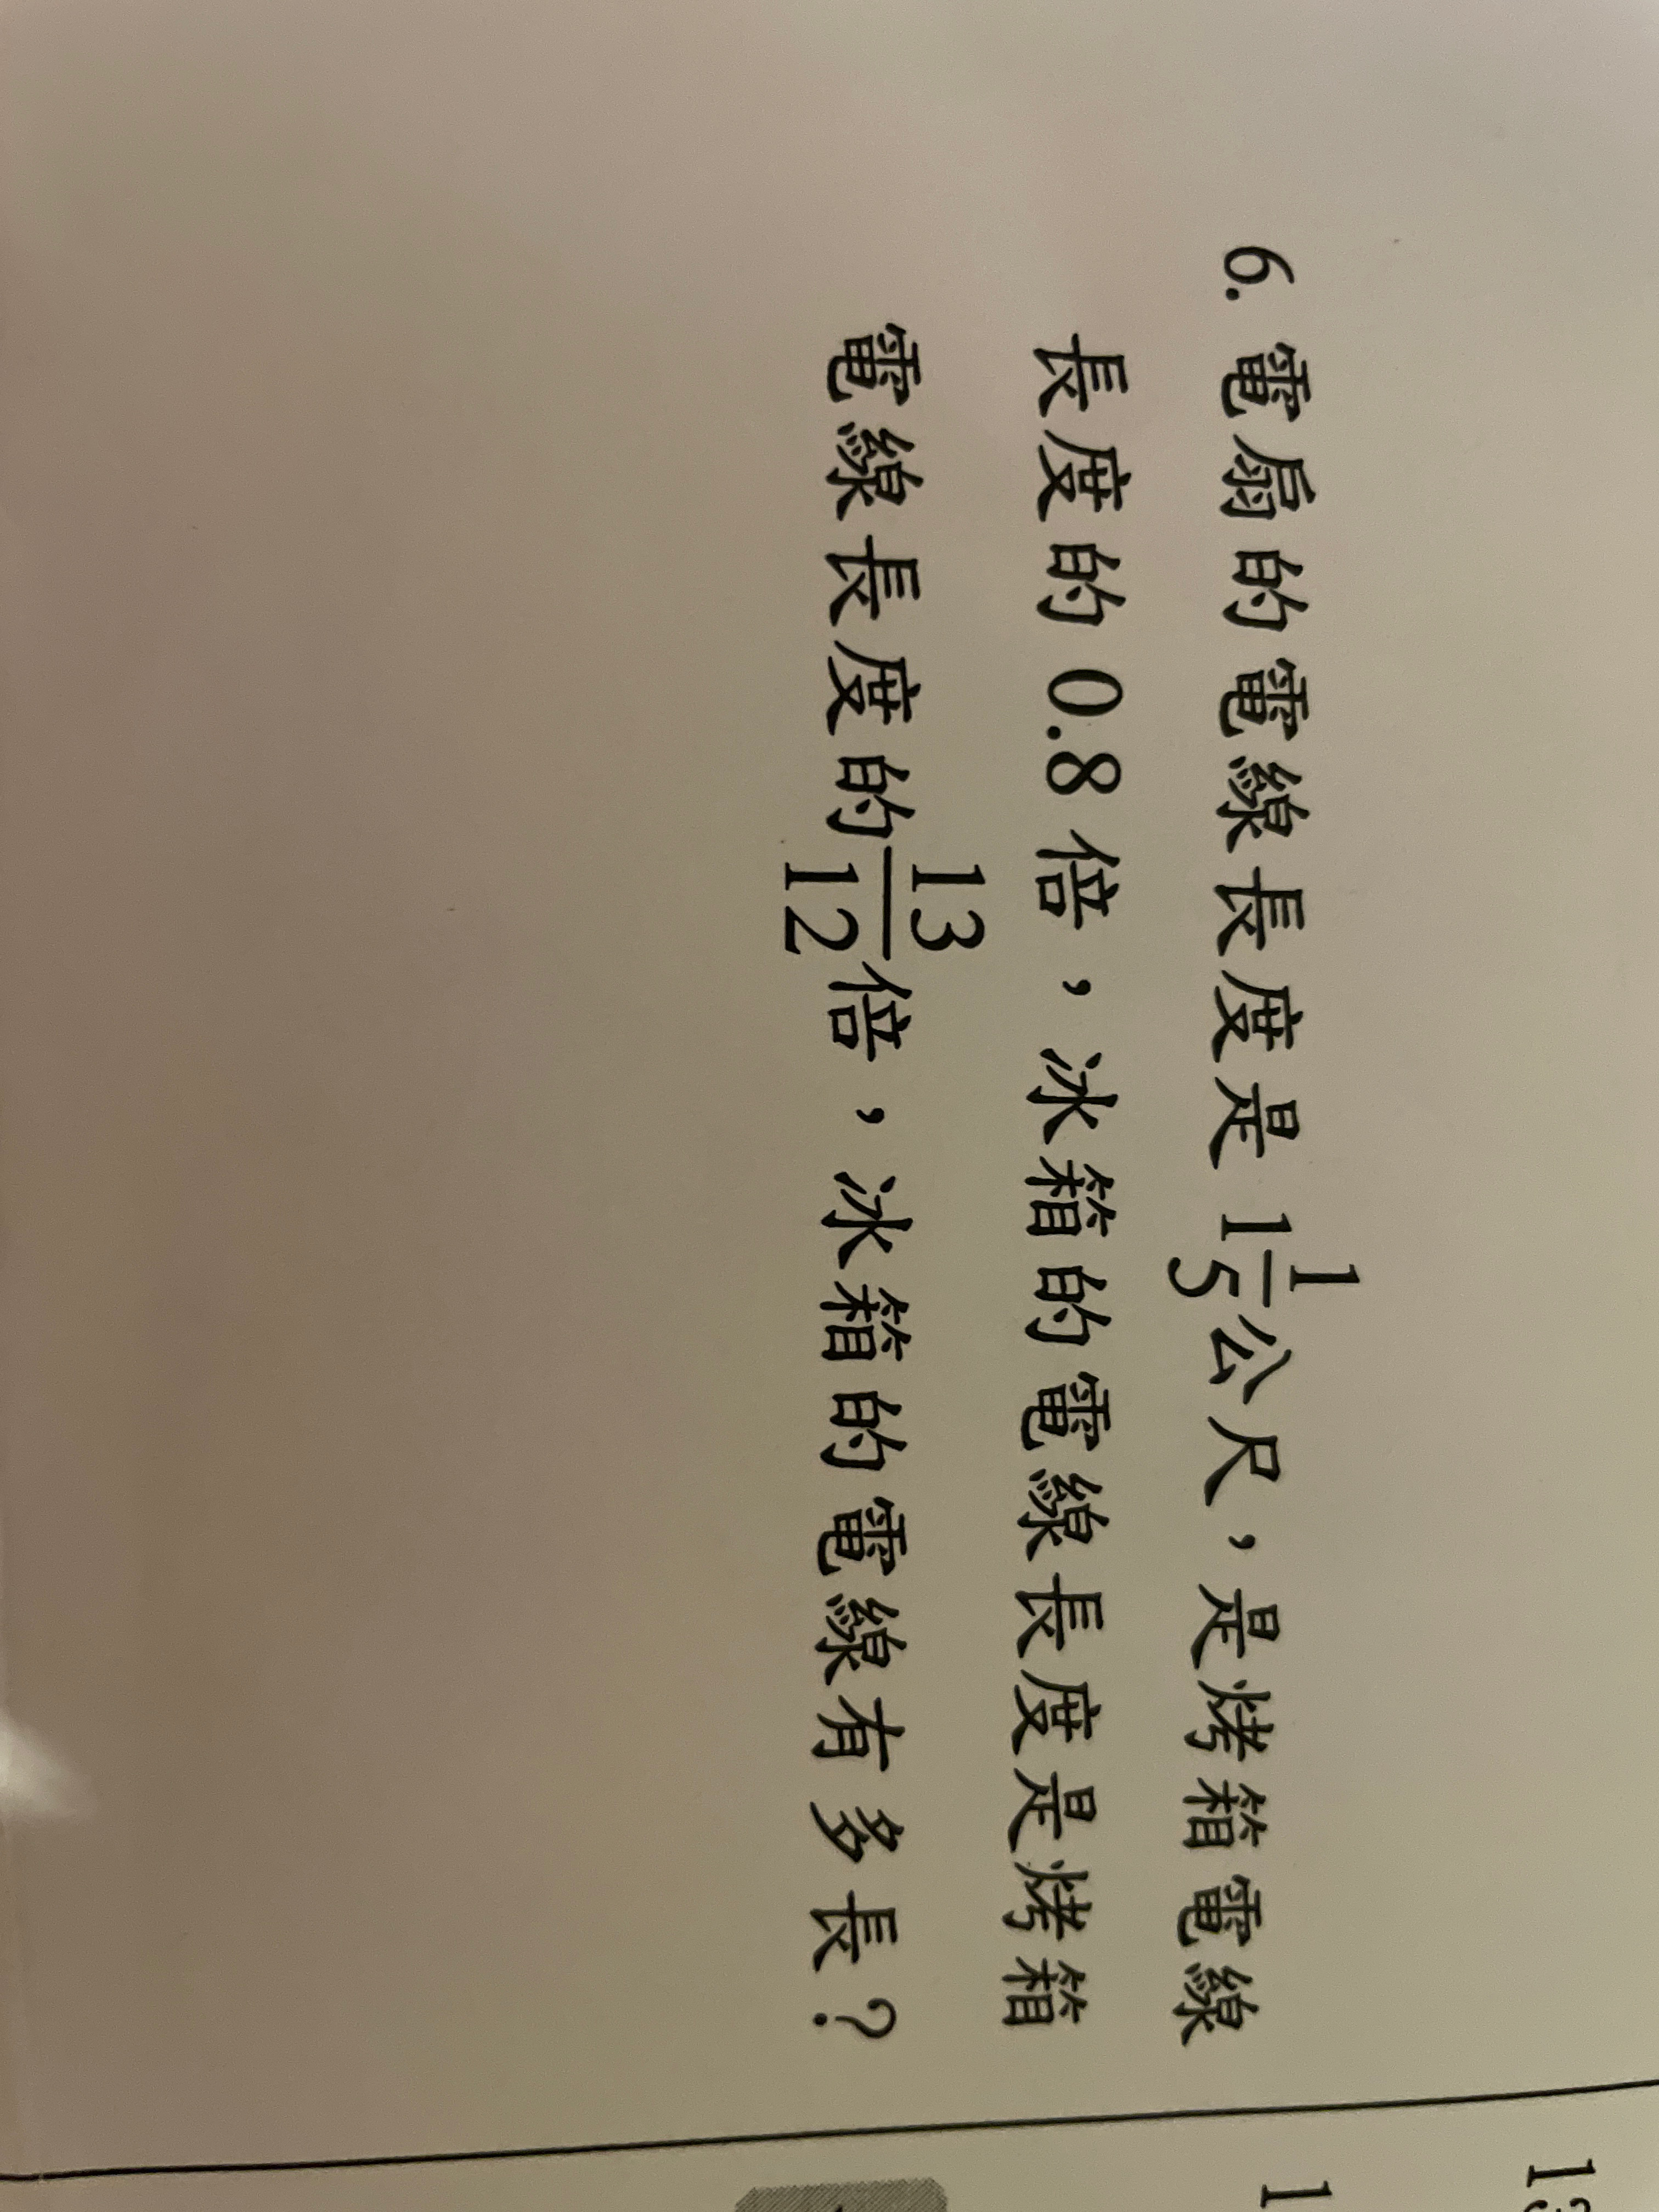 6. 電扇的電線長度是 1 1/5 公尺，是烤箱電線
長度的 0.8 倍，冰箱的電線長度是烤箱
電線長度的 13/12 倍，冰箱的電線有多長？